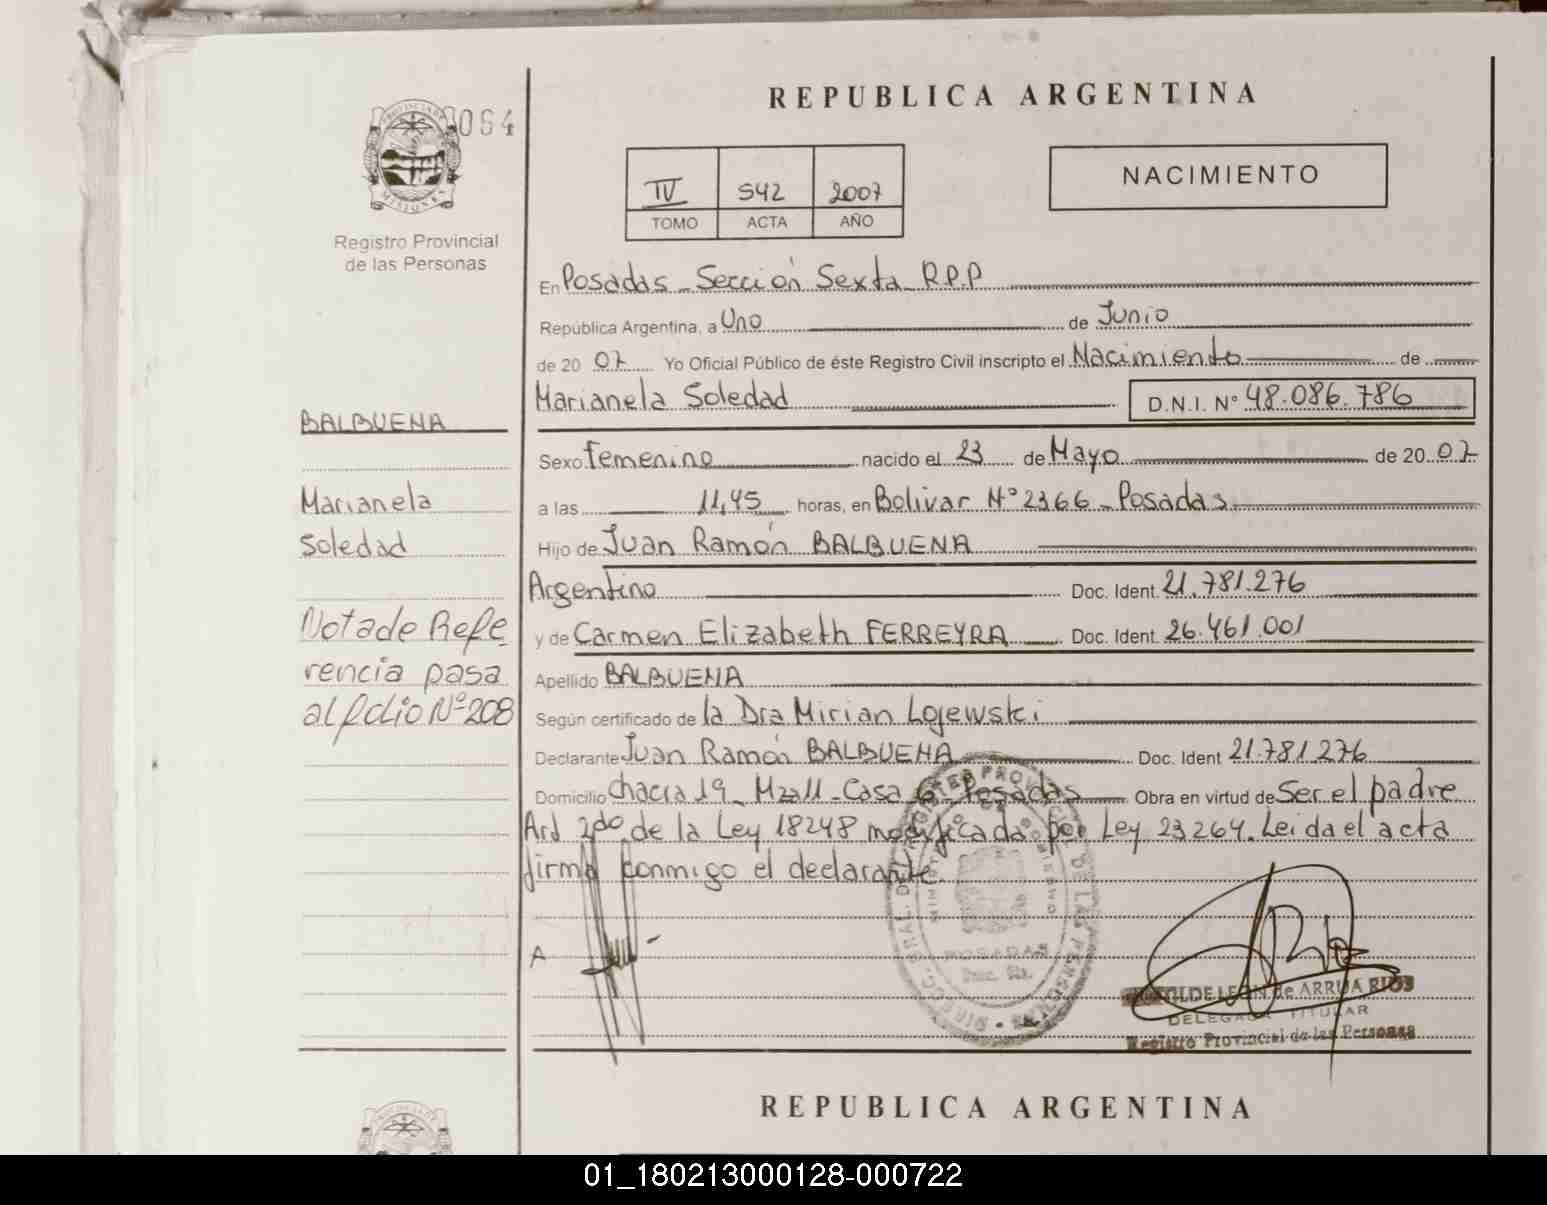 PROVINCIA DE
MISIONES
064
Registro Provincial
de las Personas
REPUBLICA ARGENTINA
IV 542 2007
TOMO ACTA AÑO
NACIMIENTO
En Posadas - Sección Sexta - R.P.P
República Argentina, a Uno de Junio
de 20 07 Yo Oficial Público de éste Registro Civil inscripto el Nacimiento de
Marianela Soledad D.N.I. N° 48.086.786
Sexo Femenino nacido el 23 de Mayo de 20 07
a las 11,45 horas, en Bolivar N° 2366 - Posadas
Hijo de Juan Ramón BALBUENA
Argentino Doc. Ident. 21.781.276
y de Carmen Elizabeth FERREYRA Doc. Ident. 26.461.001
Apellido BALBUENA
Según certificado de la Dra Mirian Lojewski
Declarante Juan Ramón BALBUENA Doc. Ident 21.781.276
Domicilio Chacra 19 - Mza 11 - Casa 6 - Posadas Obra en virtud de Ser el padre
Art 2do de la Ley 18248 modificada por Ley 23264. Leida el acta
firma conmigo el declarante.
A
BALBUENA
Marianela
Soledad
Nota de Refe
rencia pasa
al folio N° 208
POSADAS
LEON de ARRUA RIOS
DELEGADA TITULAR
Registro Provincial de las Personas
REPUBLICA ARGENTINA
01_180213000128-000722